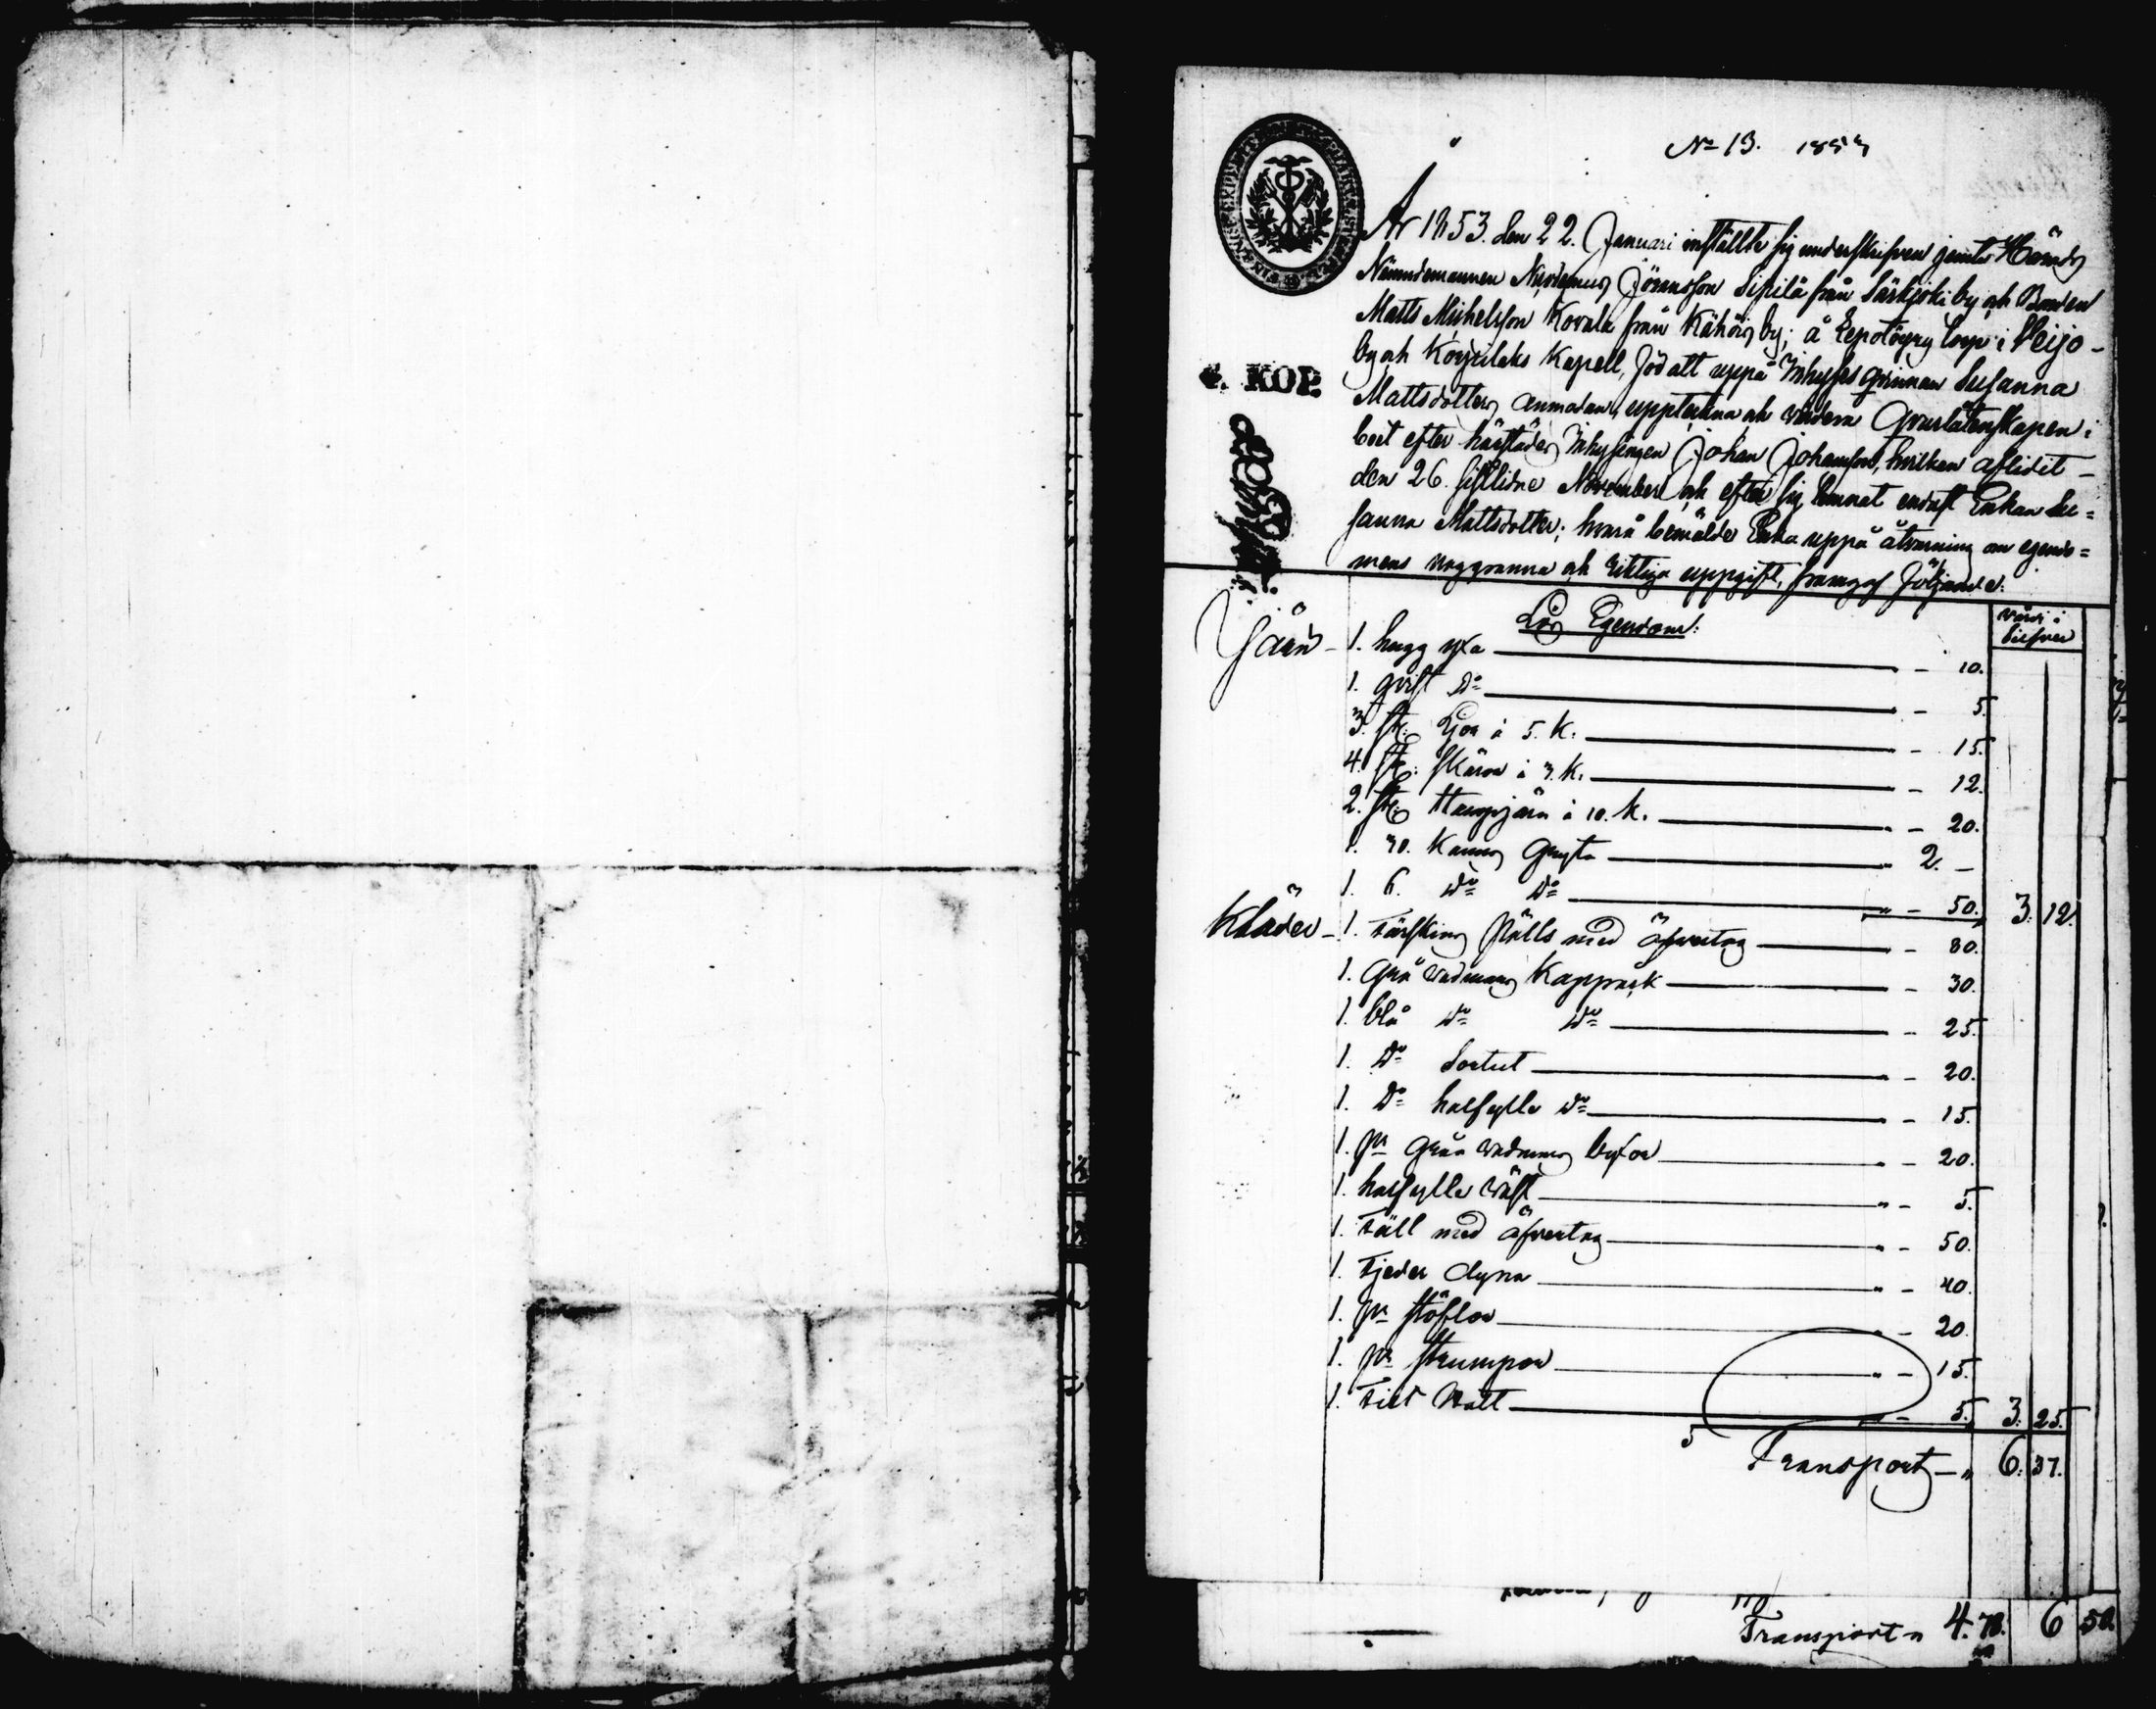 No 13. 1853
År 1853. den 22. Januari instälte sig underskrifven jemte Härads
Nämndemannen Nicodemus Jöransson Sipilä från Särkjoki by, och Bonden
Matts Michelsson Kovala från Kähöis by; å torp i Peijo-
by och Kortilaks Kapell, för att uppå Inhyses qvinnan Susanna
Mattsdotters anmodan, uppteckna och värdera qvarlåtenskapen i
boet efter härstädes Inhysingen Johan Johansson, hvilken aflidit
den 26. sistlidne November och efter sig lemnat endast Enkan Su=
sanna Mattsdotter; hvarå bemälde Enka uppå åtvarning om egendo=
mens noggranna och riktiga uppgift, framgaf följande:
4. KOP.
Lös Egendom: värde i silfver
Järn - 1. hugg yxa - 10.
1. qvist Do - 5.
3. st. Lior à 5. K. - 15.
4. st: skäror à 3. K. - 12.
2. st. Stampjärn à 10. K. - 20.
1. 30. Kanns Gryta 2. -
1. 6. Do Do - 50. 3. 12.
Kläder - 1. Fårskins Pälls med öfvertag - 80.
1. Grå vadmans Kappråck - 30.
1. blå Do Do - 25.
1. Do Sortut - 20.
1. Do halfylle Do - 15.
1. pr gråa vadmans byxor - 20.
1. halfylle väst - 5.
1. Fäll med öfvertag - 50.
1. Fjeder dyna - 40.
1. pr stöflor - 20.
1. pr strumpor - 15.
1. Filt Hatt - 5. 3. 25.
Transport - 6. 37.
Transport 4. 70. 6 50.